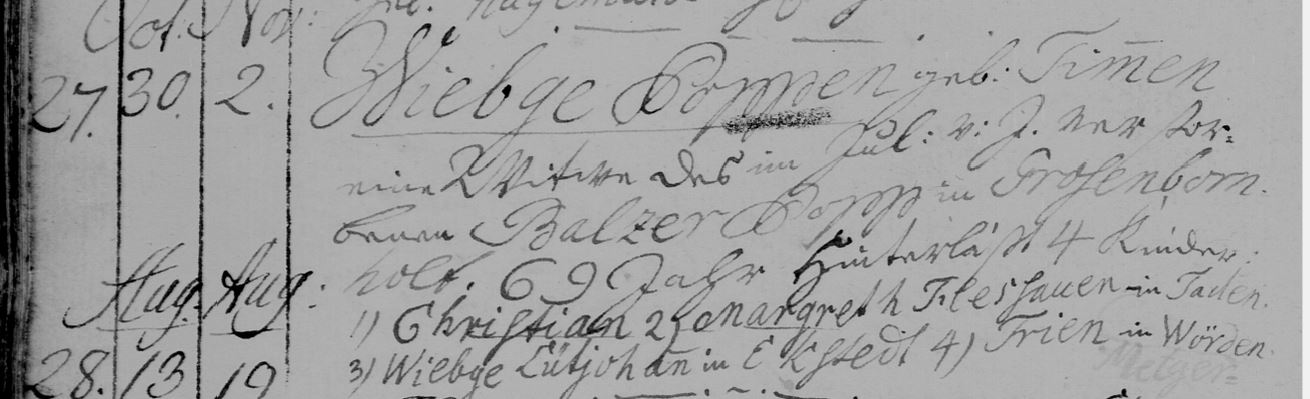 Oct. Nov:
27. 30. 2. Wiebge Poppen geb: Tim̄en
eine Witwe des im Jul: v: J. verstor-
benen Balzer Popp in Grosenborn-
holt. 69 Jahr hinterläßt 4 Kinder.
Aug. Aug:
1) Christian 2) Margreth Flessauen in Taden.
3) Wiebge Lütjohan̄ in Ekstedt 4) Trien in Wörden.
28. 13 19